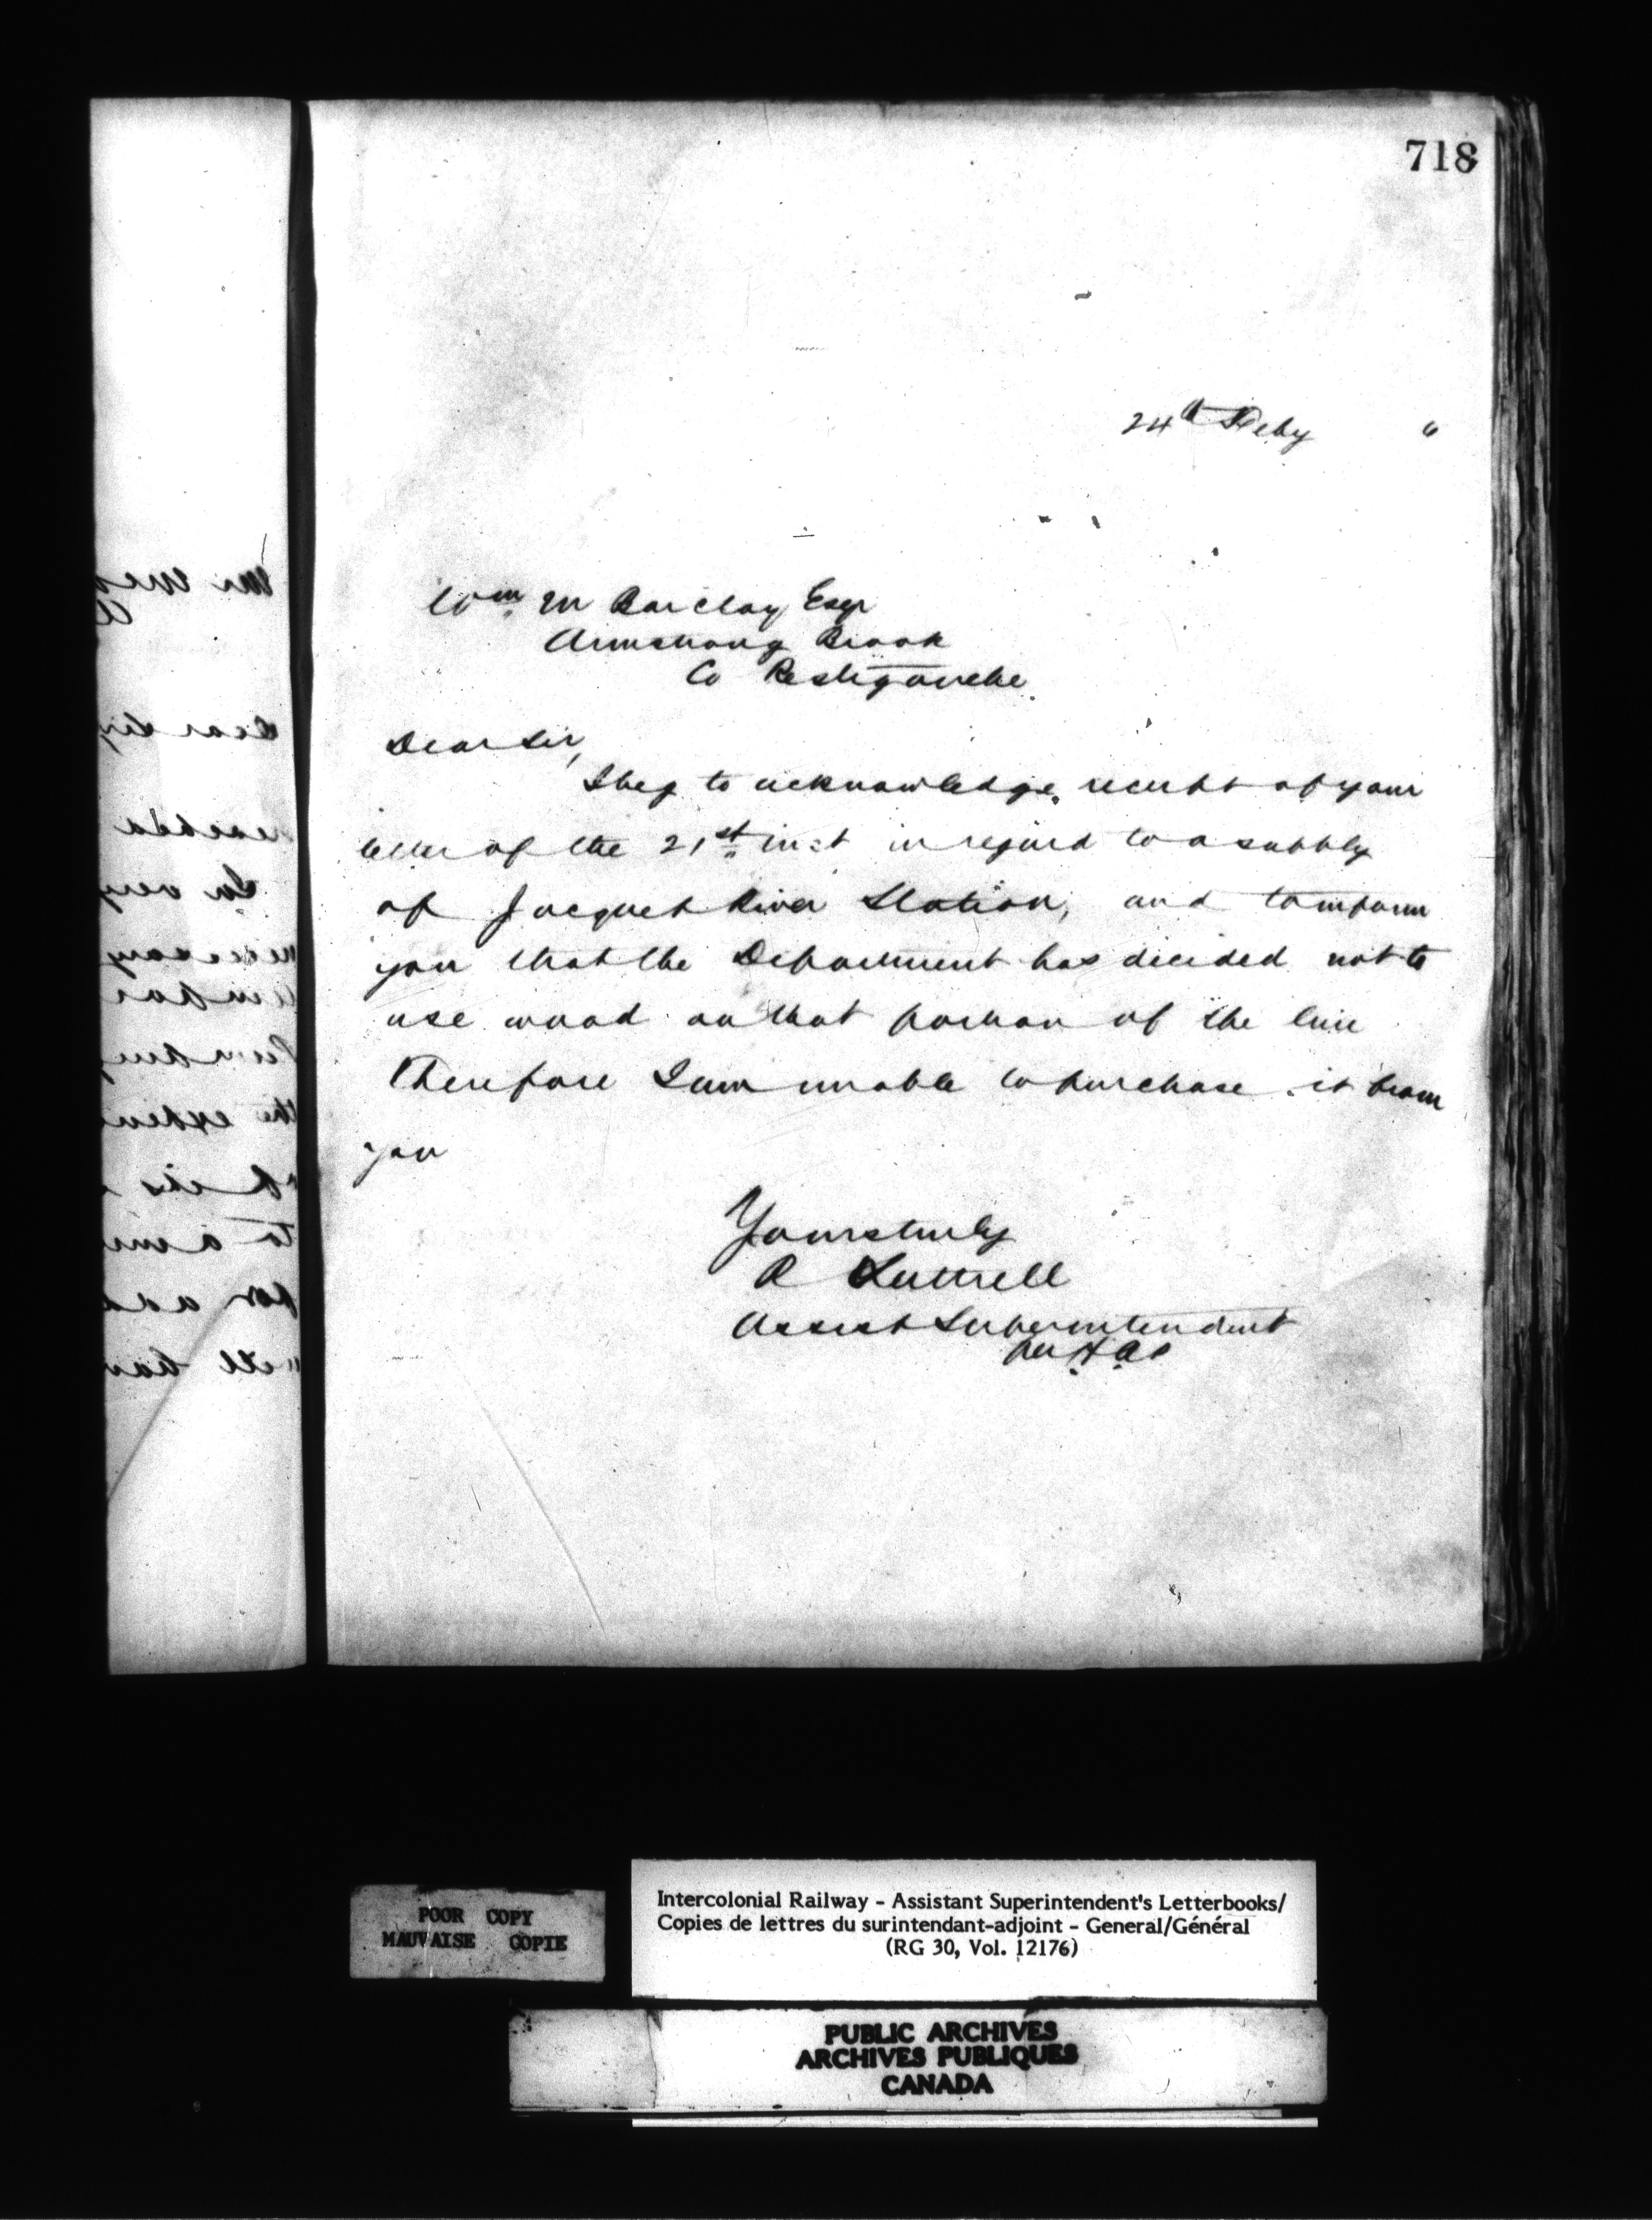 718
24th Feby "
Wm M Barclay Esqr
Armstrong Brook
Co Restigouche
Dear Sir,
I beg to acknowledge receipt of your
letter of the 21st inst in regard to a supply
of Jacquet River Station, and to inform
you that the Department has decided not to
use wood on that portion of the line
Therefore I am unable to purchase it from
you
Yours truly
R Luttrell
Assist Superintendent
per
POOR COPY
MAUVAISE COPIE
Intercolonial Railway - Assistant Superintendent's Letterbooks/
Copies de lettres du surintendant-adjoint - General/Général
(RG 30, Vol. 12176)
PUBLIC ARCHIVES
ARCHIVES PUBLIQUES
CANADA